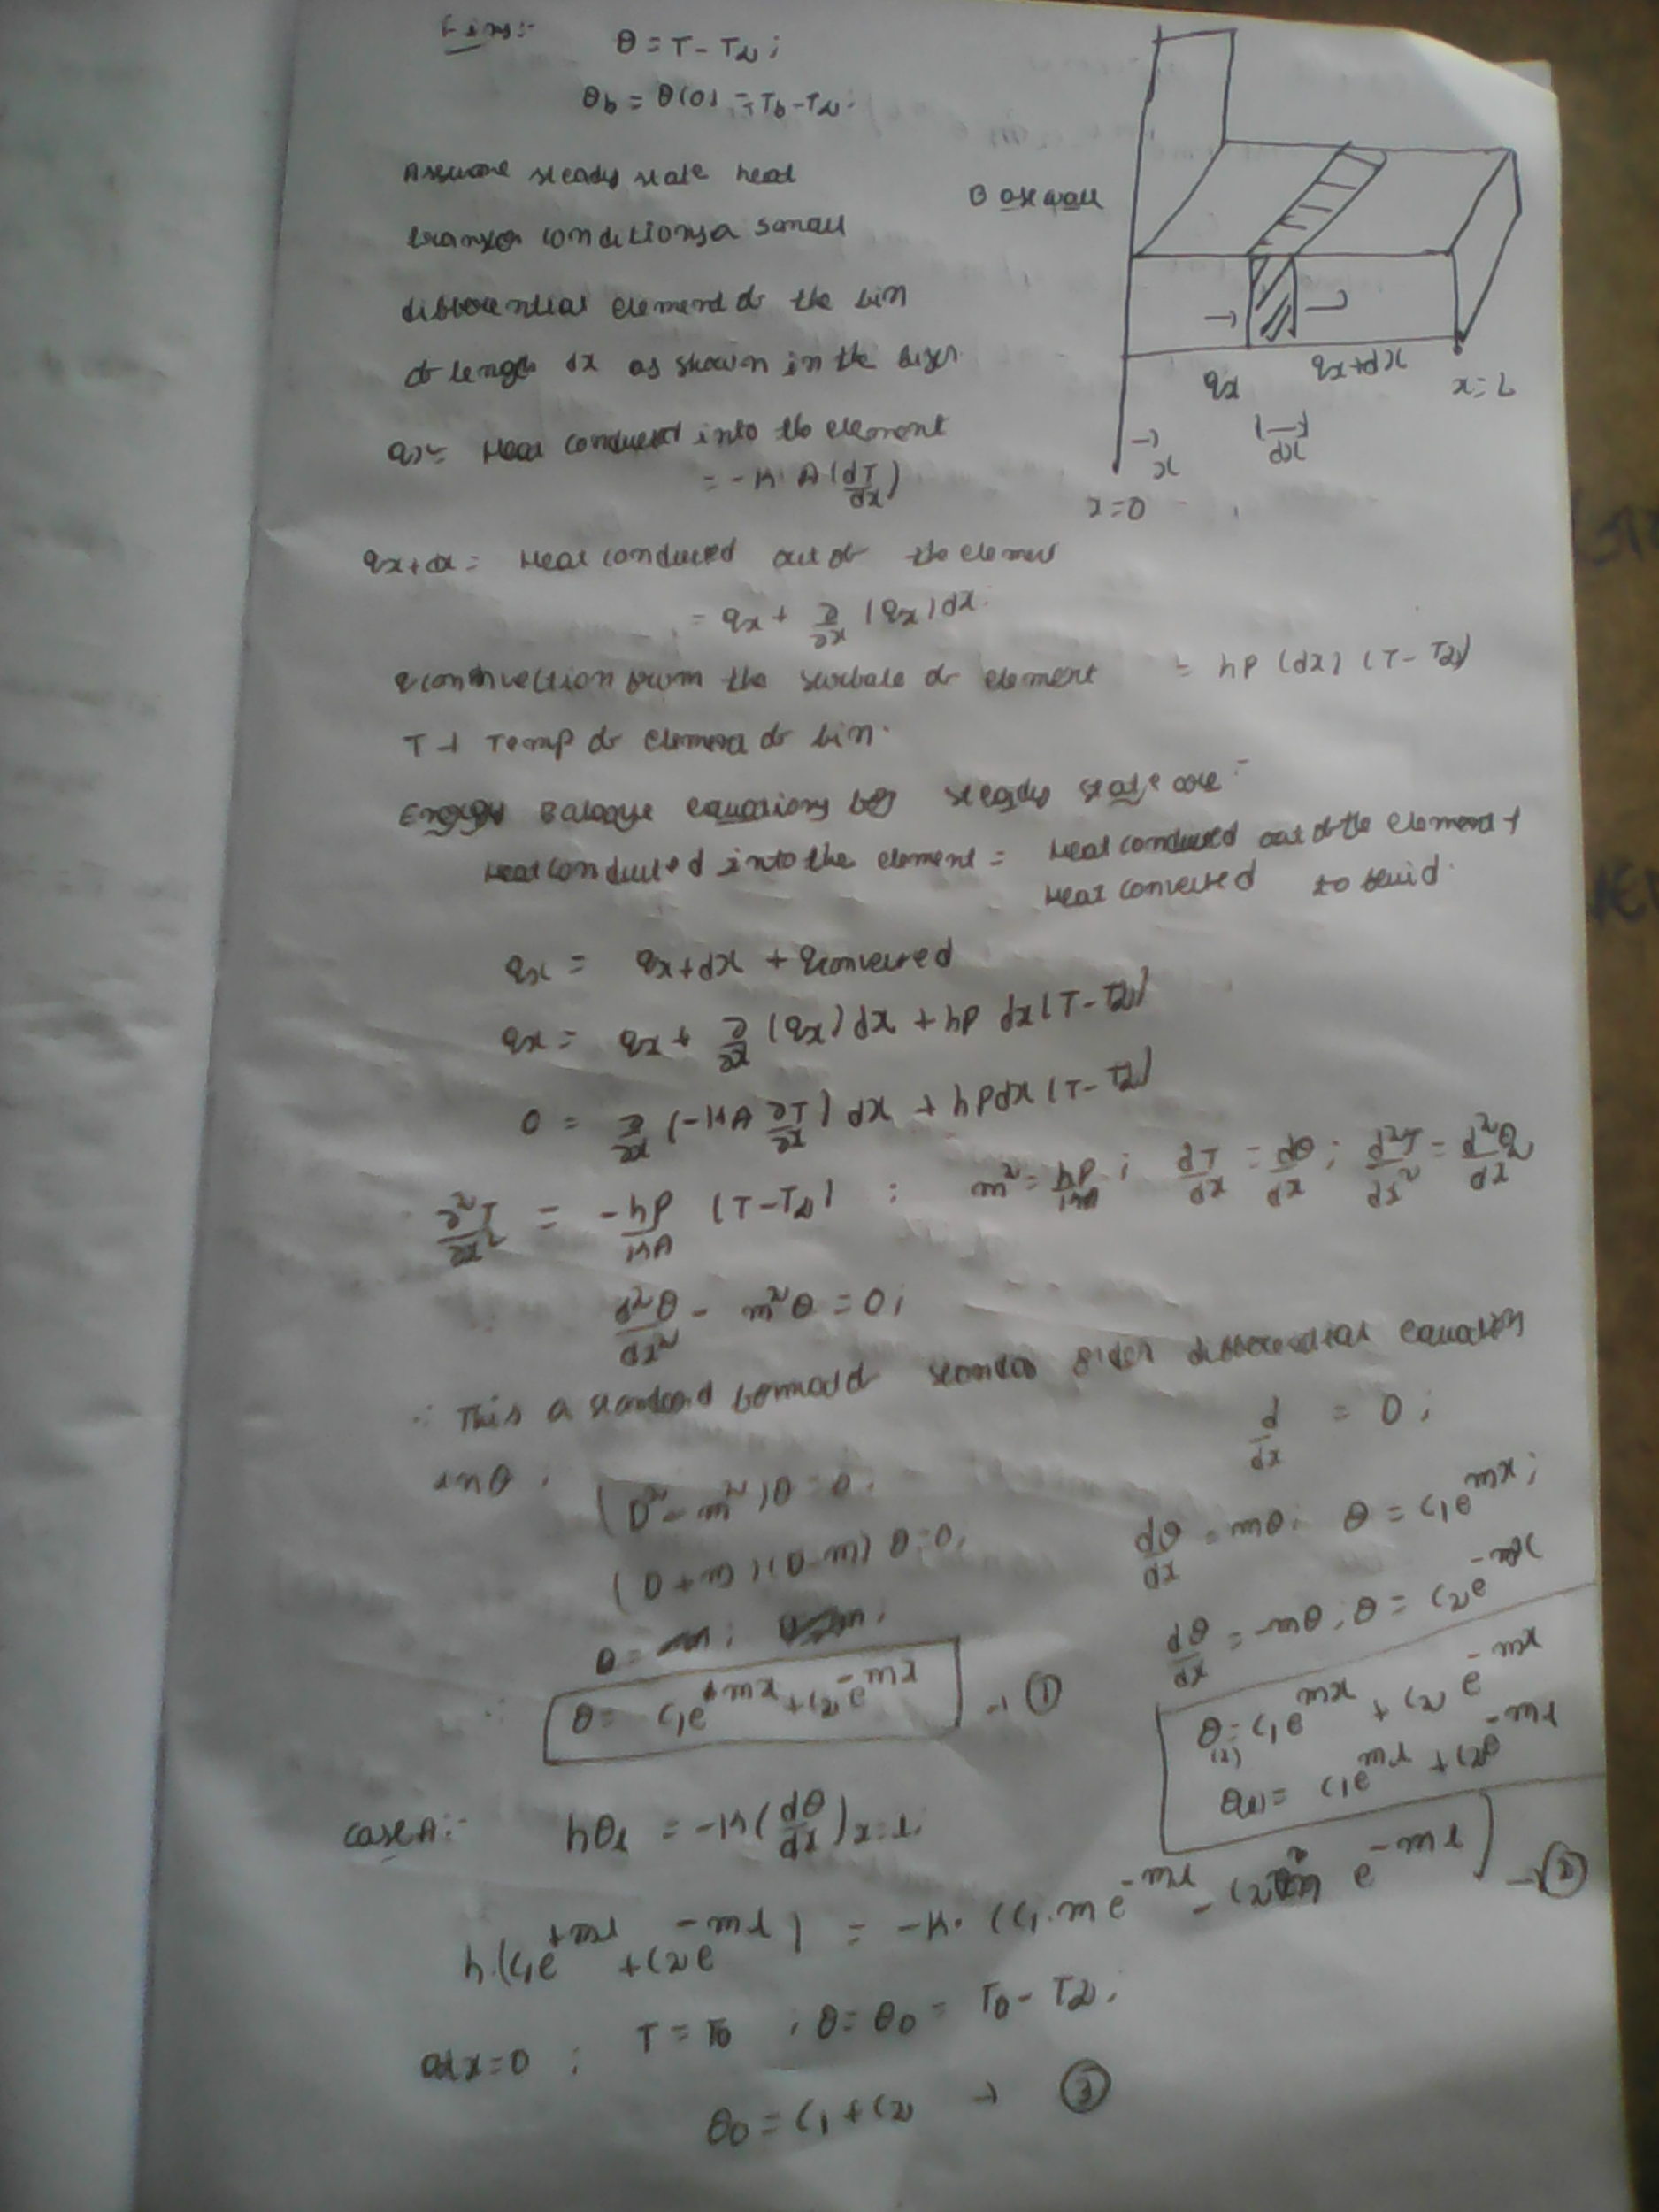 Fins:-
θ = T - T∞ ;
θb = θ(0) = Tb - T∞.
Assume steady state heat
transfer conditions a small
differential element of the fin
of length dx as shown in the
Base wall
qx
qx+dx
x=L
dx
x
x=0
qx = Heat conducted into the element
= -K A (dT/dx)
qx+dx = Heat conducted out of the element
= qx + ∂/∂x (qx) dx.
qconvection from the surface of element = hP (dx) (T - T∞)
T → Temp of element of fin.
Energy Balance equations for steady state case:-
Heat conducted into the element = Heat conducted out of the element +
Heat convected to fluid.
qx = qx+dx + qconvected
qx = qx + ∂/∂x (qx) dx + hP dx (T - T∞)
0 = ∂/∂x (-KA ∂T/∂x) dx + hPdx (T - T∞)
∂²T/∂x² = -hP/KA (T - T∞) ; m² = hP/KA ; dT/dx = dθ/dx ; d²T/dx² = d²θ/dx²
d²θ/dx² - m²θ = 0 ;
∴ This a standard form of second order differential equation
in θ .
d/dx = D ;
(D² - m²) θ = 0 .
(D + m) (D - m) θ = 0 ,
dθ/dx = mθ ; θ = C1e^mx ;
dθ/dx = -mθ ; θ = C2e^-mx
∴ θ = C1e^+mx + C2e^-mx → ①
θ(x) = C1e^mx + C2 e^-mx
θ(l) = C1e^ml + C2e^-ml
Case A:- hθl = -K (dθ/dx)x=l.
h.(C1e^+ml + C2e^-ml) = -K. (C1.me^-ml - C2m e^-ml) → ②
at x=0 ; T = T0 , θ = θ0 = T0 - T∞ ,
θ0 = C1 + C2 → ③